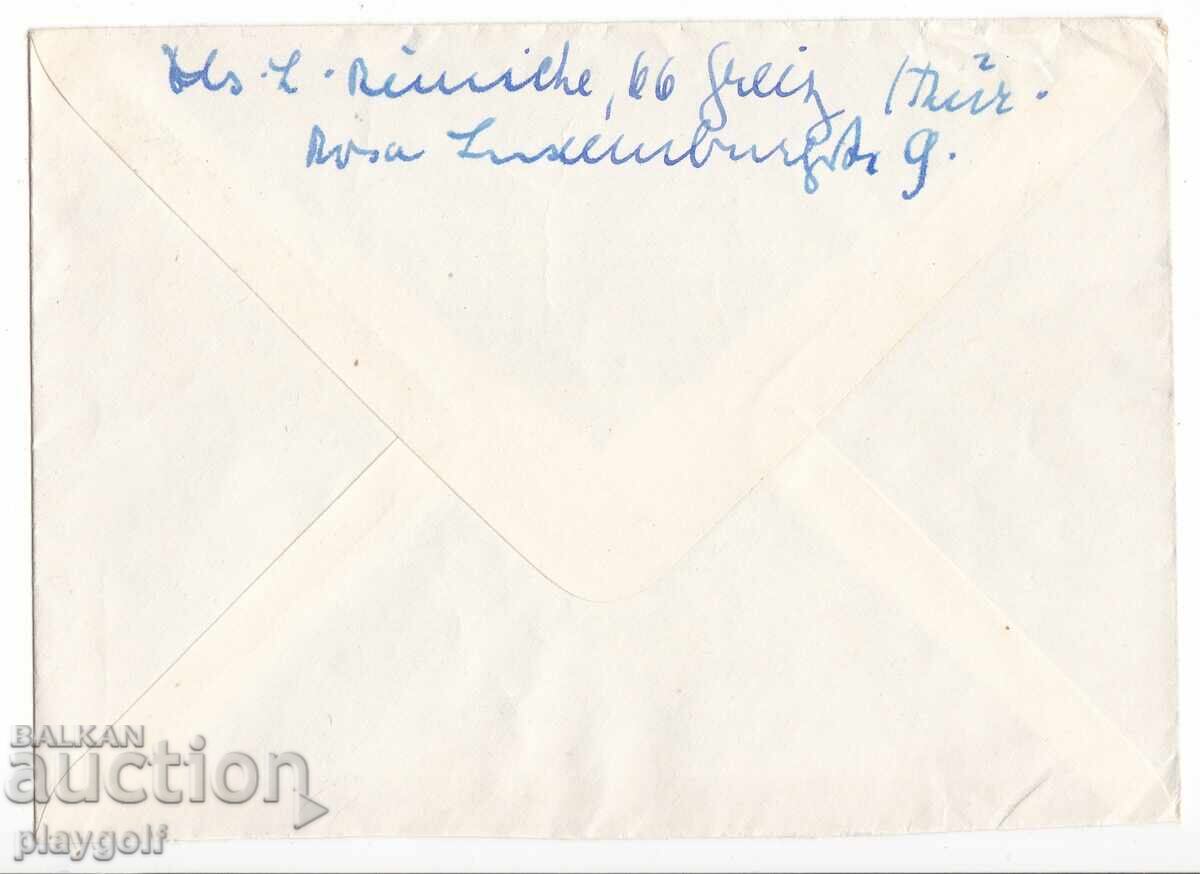 Abs. L. Reinicke, 66 Greiz /Thür.
Rosa Luxemburgstr 9.
BALKAN
auction
playgolf